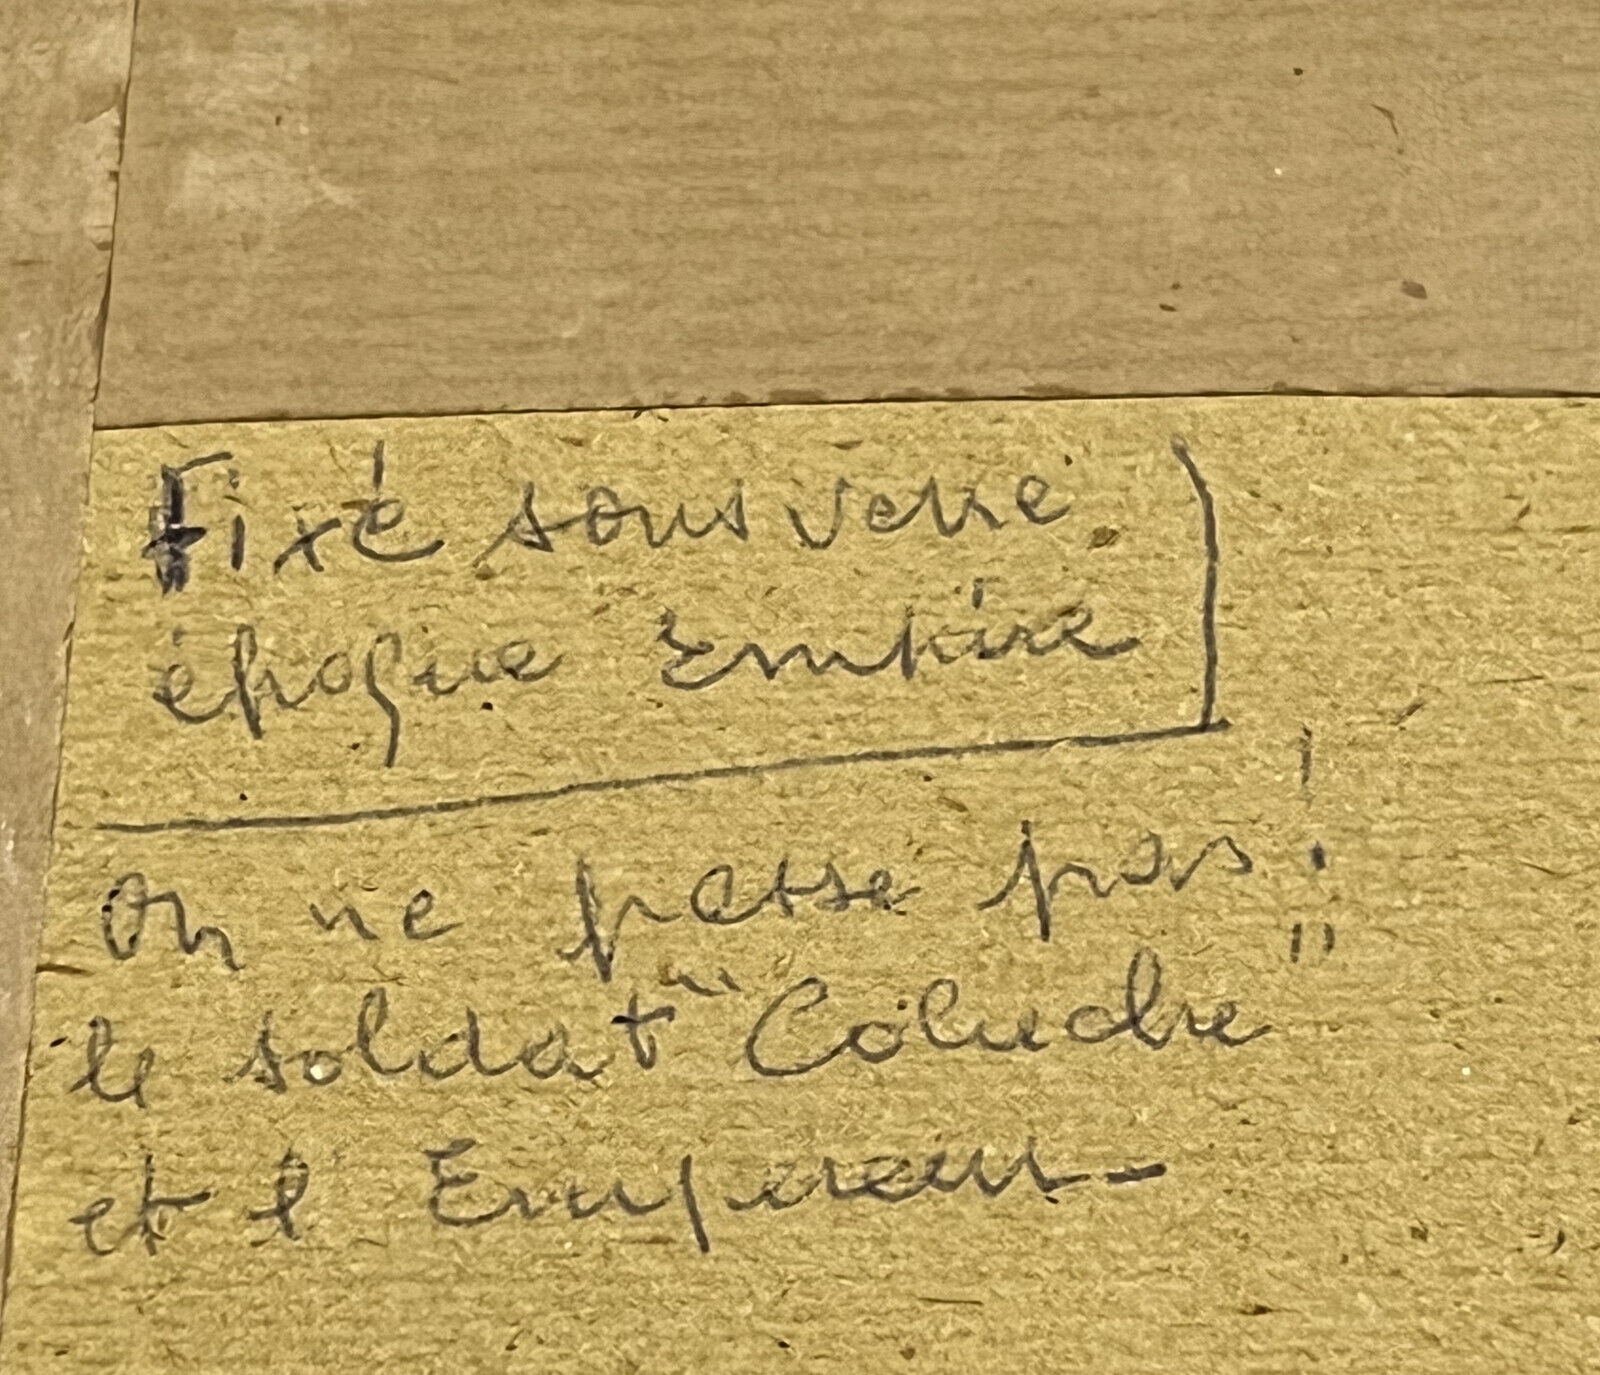 Fixé sous verre
époque Empire
On ne passe pas !
le soldat "Coluche"
et l'Empereur -